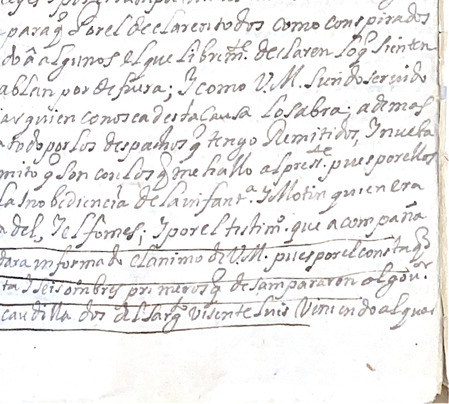 para q̃ por el declaren todos como conspirados
do â algunos el que librem.te declaren lo q̃ sienten
ablan por de fuera; I como V.M. siendo servido
quien conosca desta causa lo sabra; ademas
a todo por los despachos q̃ tengo Remitidos, I nueba
mito q̃ son con los q̃ me hallo al pres.te pues por ellos
la Inobediencia de la infant.a I Motin quien era
a del, I el fomes; I por el testim.o que acompaña
dara informado el animo de V.M. pues por el consta q̃
ta I seis ombres primeros q̃ desampararon al gov.or
caudilla dos del Sarg.to Visente Luis Viniendo al qua